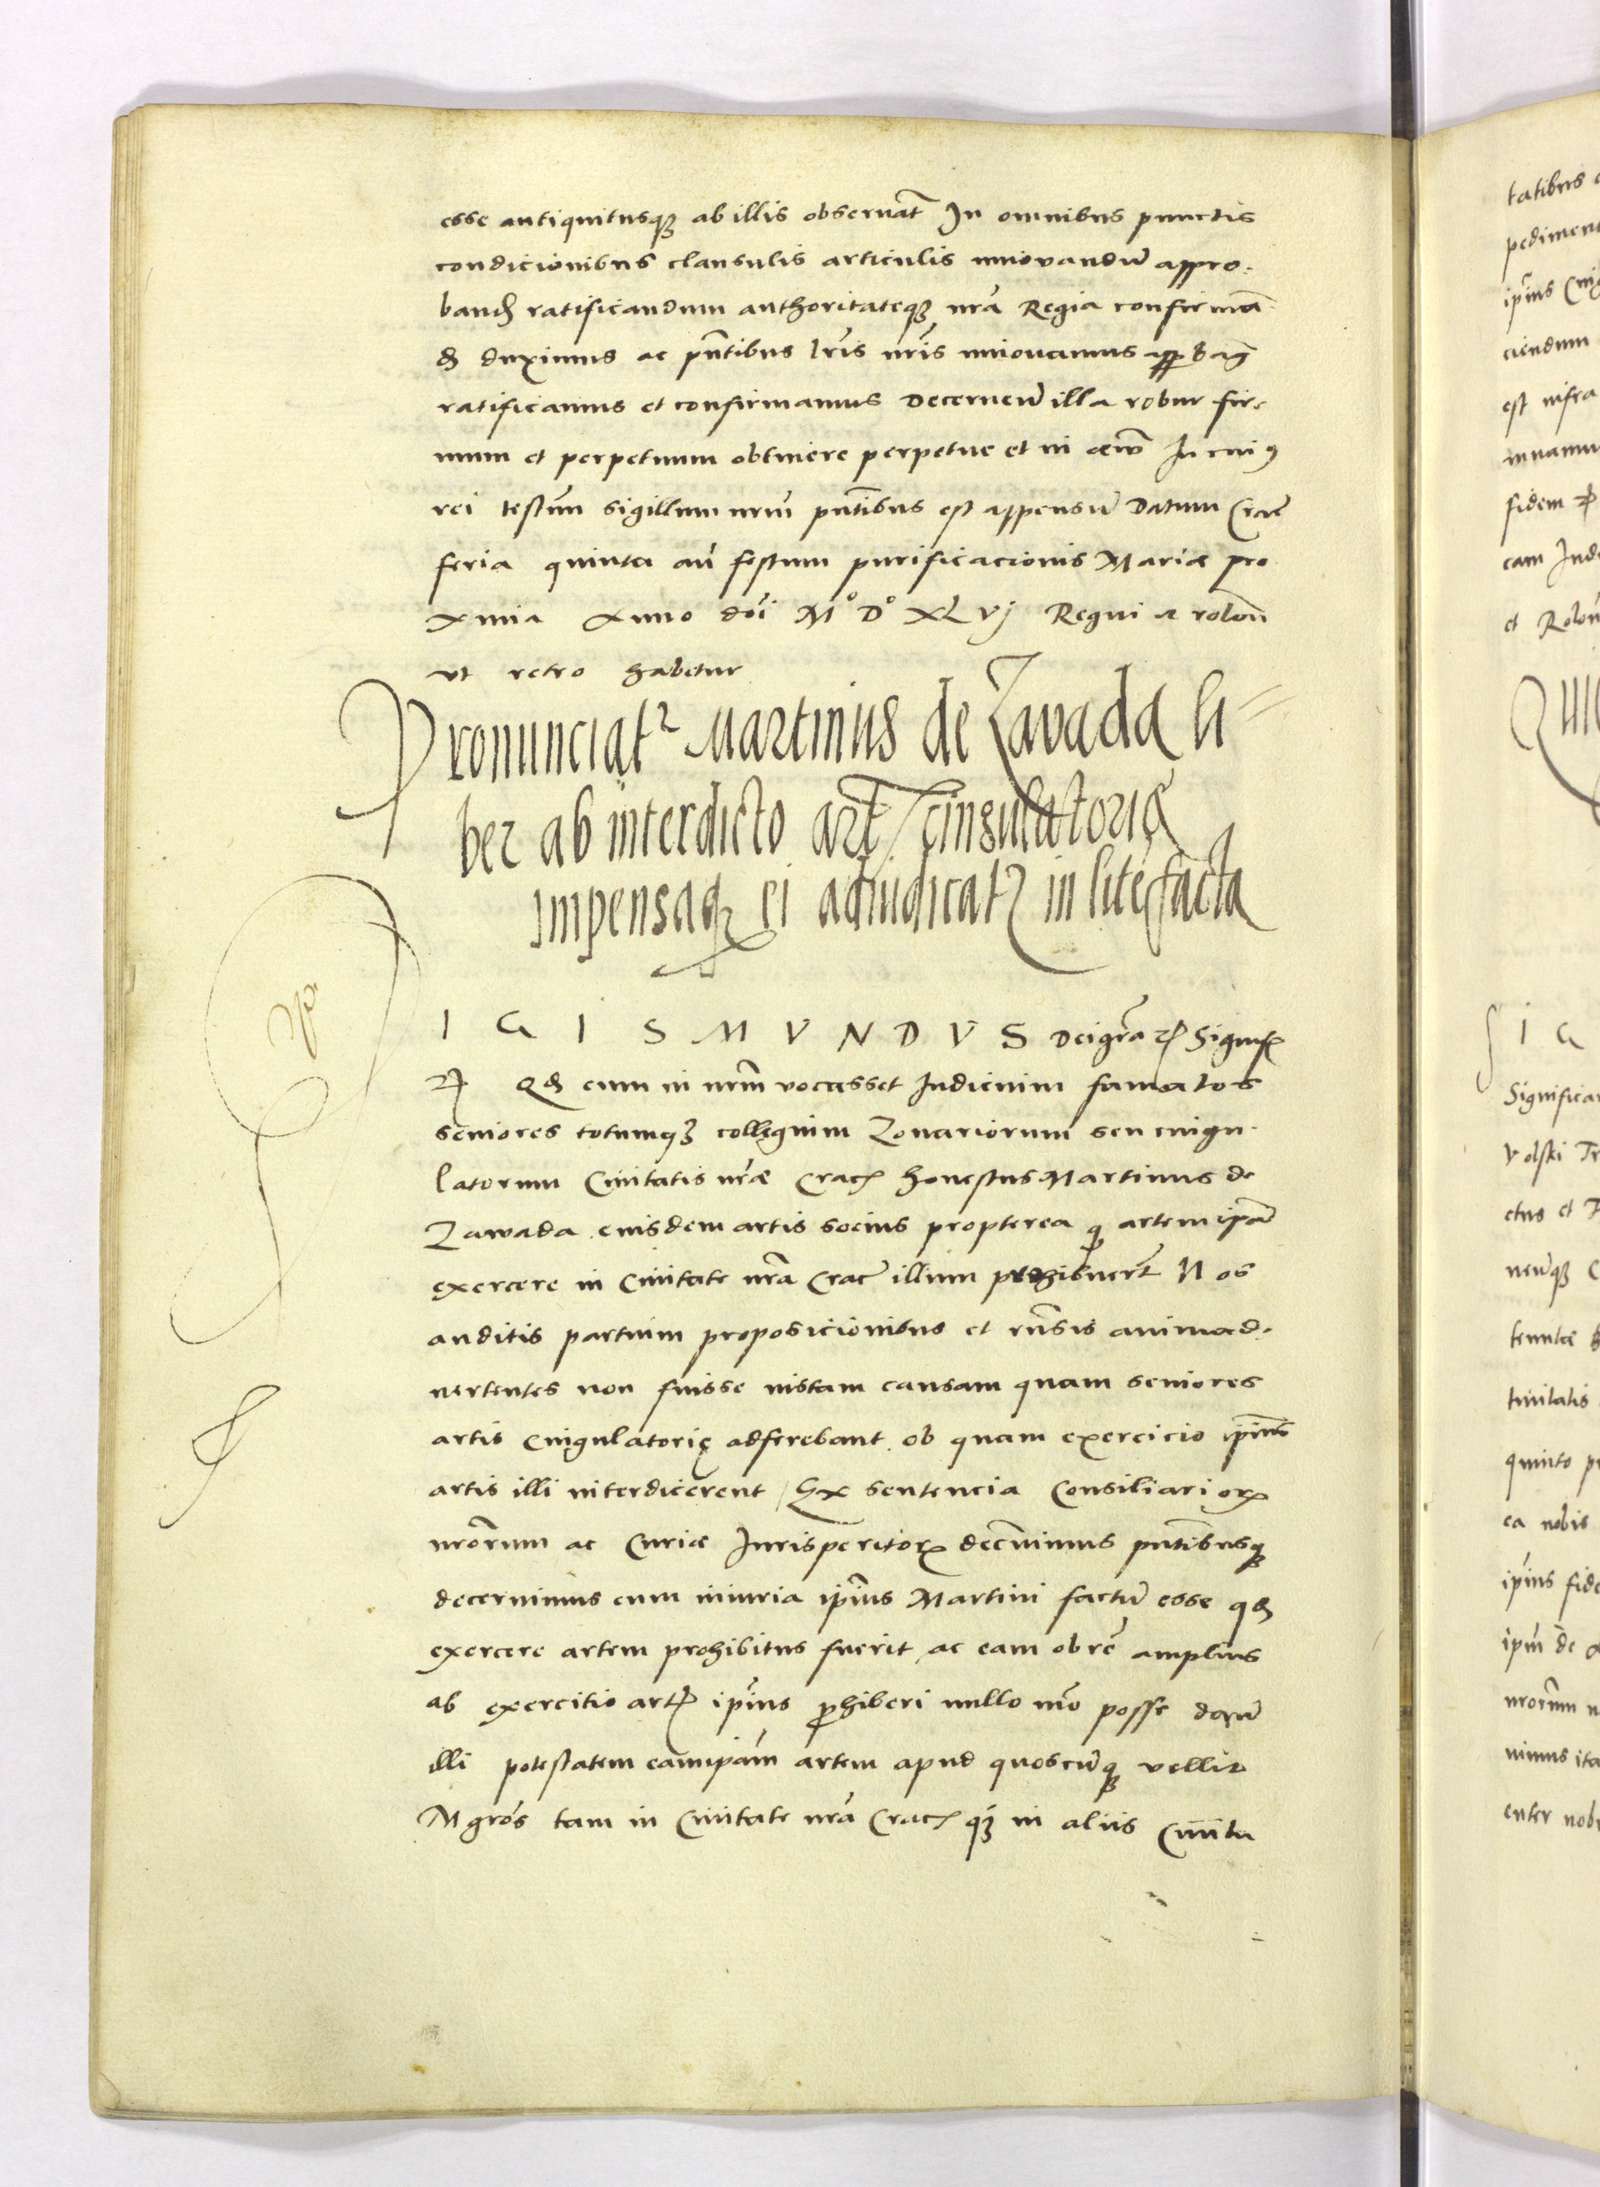 esse antiquitusqȝ ab illis obseruat̃ In omnibus punctis
condicionibus clausulis articulis innouandũ appro⸗
band ratificandum authoritateqȝ nr̃a Regia confirmã
d duximus ac pñtibus lr̃is nr̃is innouamus app̱bamꝰ
ratificamus et confirmamus Decernen̄ illa robur fir⸗
mum et perpetuum obtinere perpetue et in æuũ In cuiꝰ
rei testim̃ sigillum nrũ pñtibus est appensũ Datum Crac̃
feria quinta añ festum purificacionis Mariæ pro
xima Anno dñi Mº Dº XLVj Regni ac relõn
vt retro habetur
Pronunciatᷣ Martinus de Zawada li⸗
ber ab interdicto artꝭ cingulatoriæ
impensaqȝ ei adiudicatᷣ in lite facta
I G I S M V N D V S Dei gr̃a ꝛc Signif
ꝛc Qd cum in nr̃m vocasset Iudicium famatos
seniores totumqȝ collęgium Zonariorum seu cingu⸗
latorum Ciuitatis nr̃æ Crac honestus Martinus de
Zawada eiusdem artis socius propterea qp artem ipãm
exercere in Ciuitate nr̃a Crac̃ illum prohibuer̃t Nos
auditis partium proposicionibus et rñsis animad⸗
uertentes non fuisse iustam causam quam seniores
artis Cingulatorię adferebant ob quam exercicio ip̃ius
artis illi interdicerent Ex sentencia Consiliarioꝝ
nr̃orum ac Curiæ Iurisperitoꝝ decreuimus pñtibusqȝ
decernimus cum iniuria ip̃ius Martini factũ esse qd
exercere artem prohibitus fuerit ac eam ob rẽ amplius
ab exercitio artꝭ ip̃ius ꝓhiberi nullo mõ posse
illi potestatem eam ip̃am artem apud quoscũqȝ vellit
Mgr̃os tam in Ciuitate nr̃a Crac qȝ in aliis Ciuita